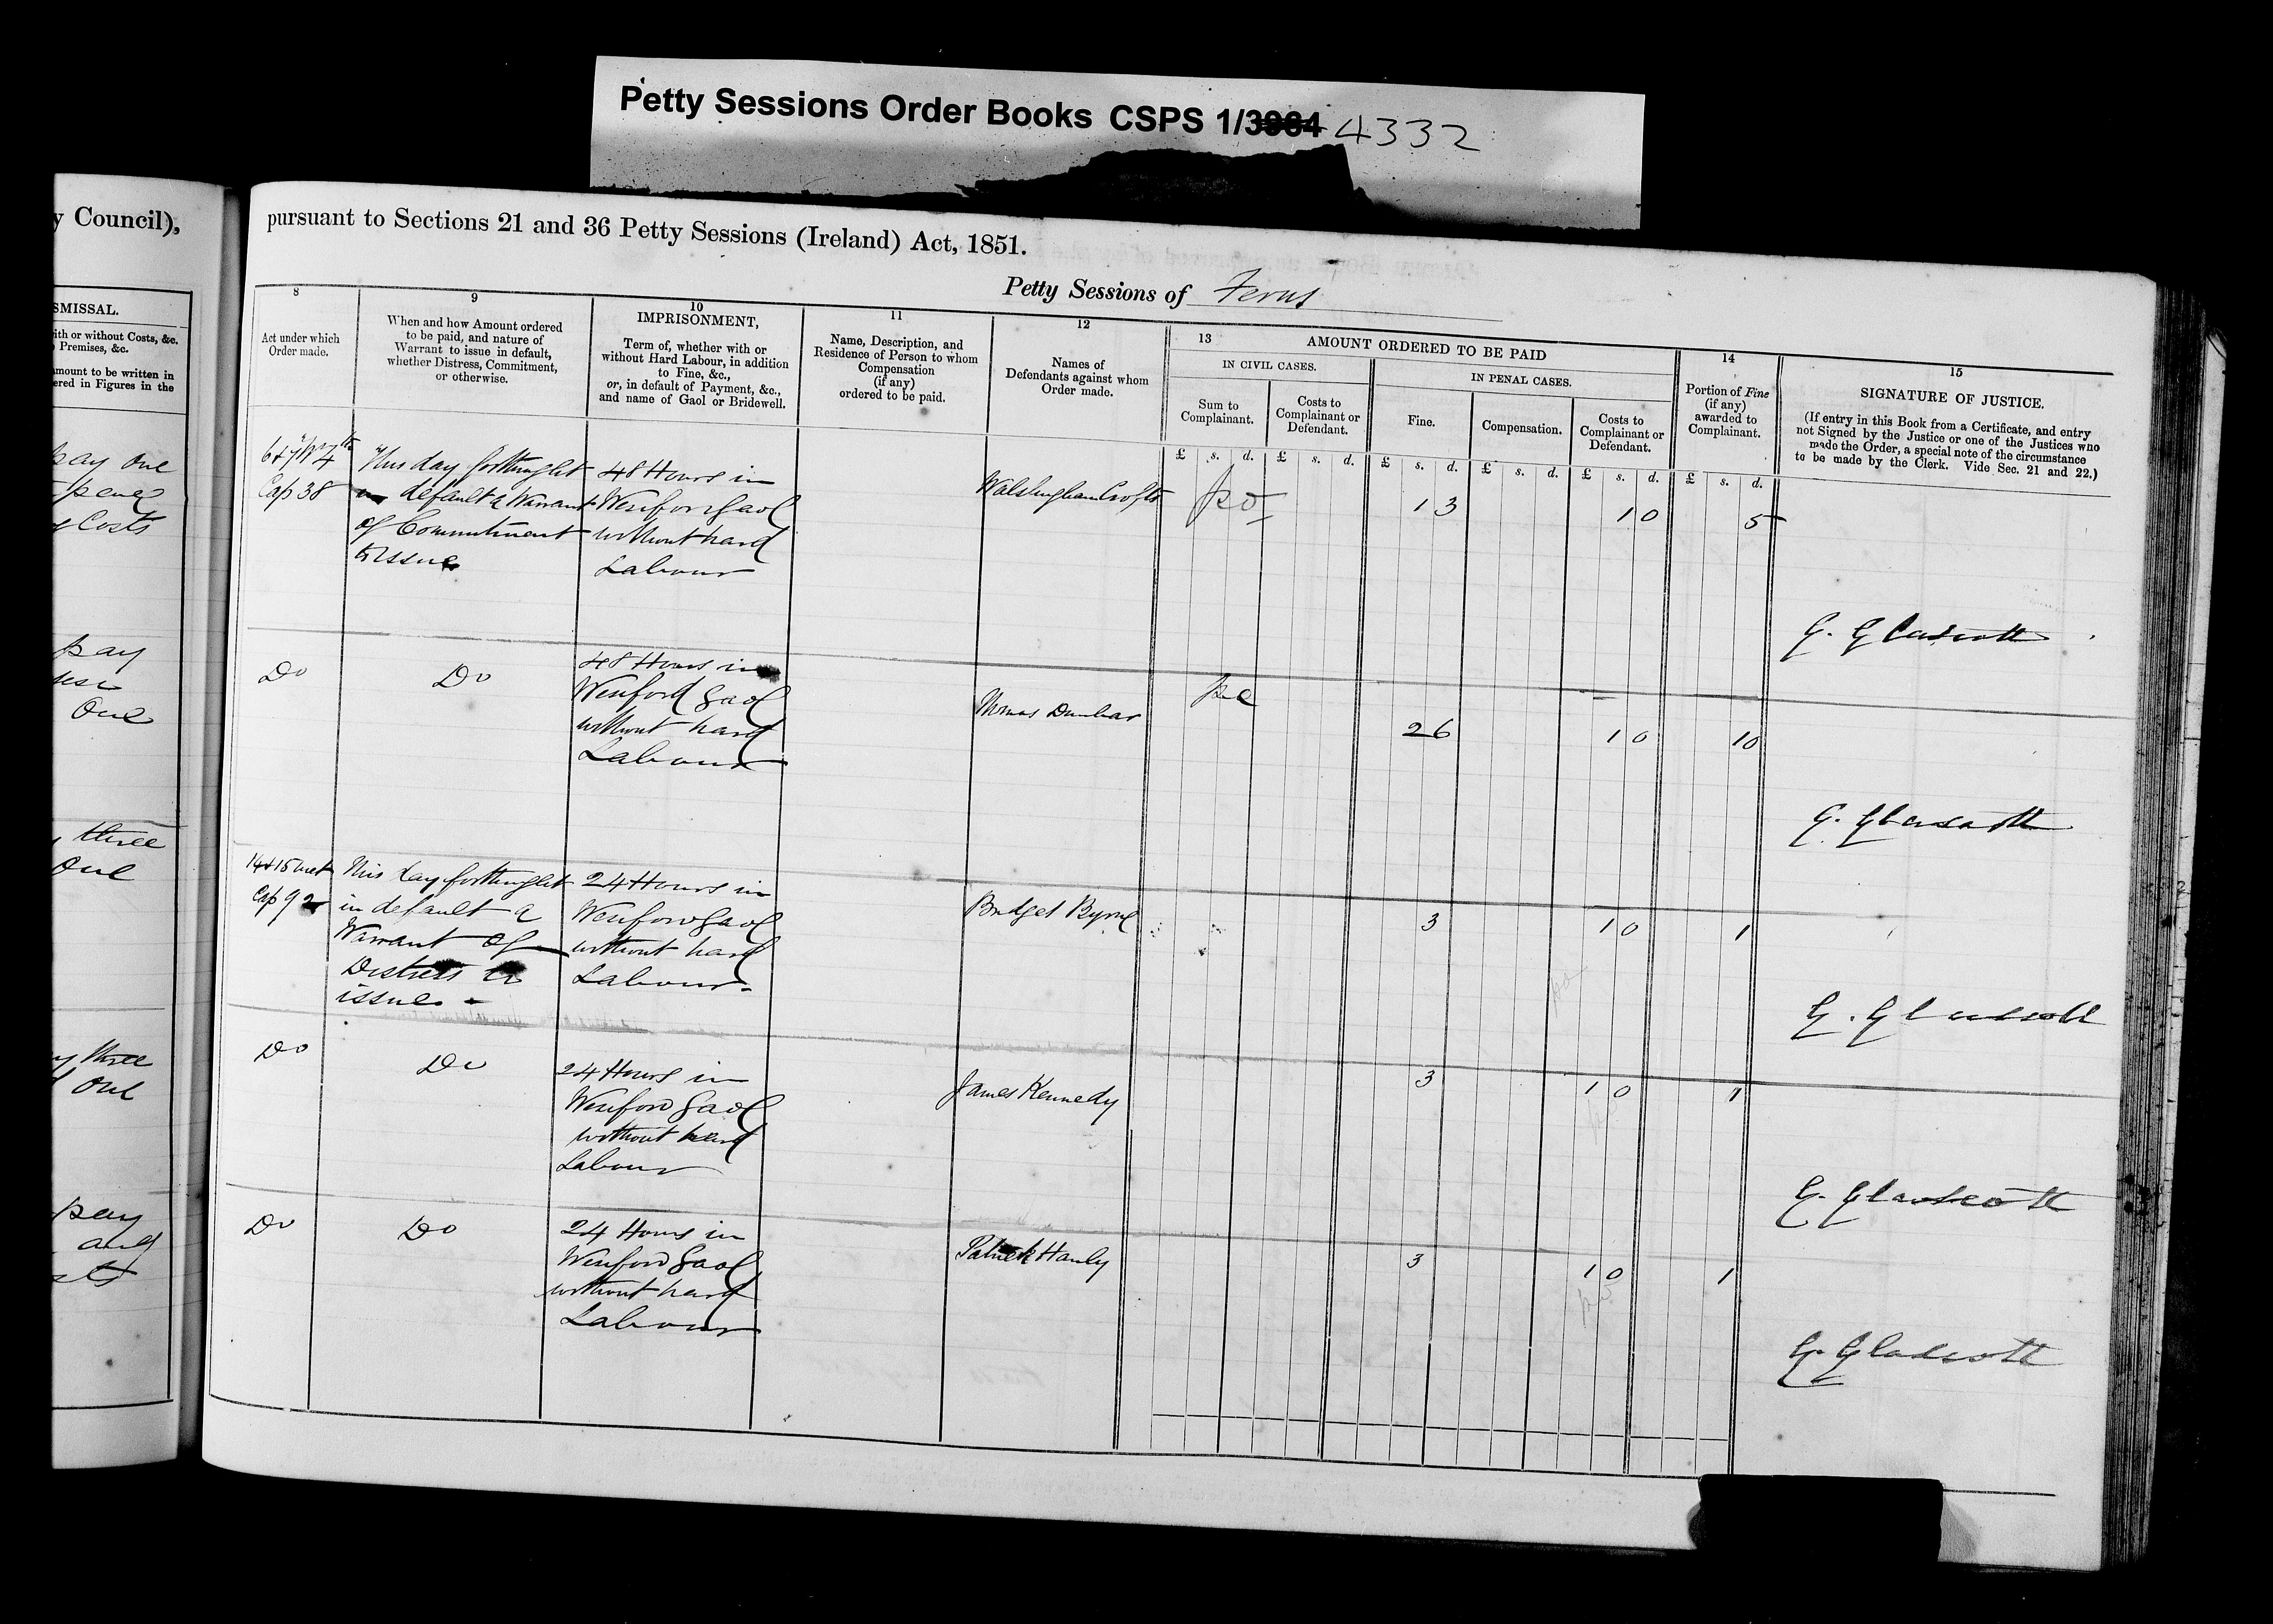 Petty Sessions Order Books CSPS 1/3964 4332
y Council),
pursuant to Sections 21 and 36 Petty Sessions (Ireland) Act, 1851.
Petty Sessions of Ferns
SMISSAL.
ith or without Costs, &c.
Premises, &c.
mount to be written in
ered in Figures in the
pay One
pence
Costs
pay
One
three
One
three
One
pay
and
8
Act under which
Order made.
9
When and how Amount ordered
to be paid, and nature of
Warrant to issue in default,
whether Distress, Commitment,
or otherwise.
10
IMPRISONMENT,
Term of, whether with or
without Hard Labour, in addition
to Fine, &c.,
or, in default of Payment, &c.,
and name of Gaol or Bridewell.
11
Name, Description, and
Residence of Person to whom
Compensation
(if any)
ordered to be paid.
12
Names of
Defendants against whom
Order made.
13
AMOUNT ORDERED TO BE PAID
IN CIVIL CASES.
IN PENAL CASES.
Sum to
Complainant.
Costs to
Complainant or
Defendant.
Fine.
Compensation.
Costs to
Complainant or
Defendant.
14
Portion of Fine
(if any)
awarded to
Complainant.
15
SIGNATURE OF JUSTICE.
(If entry in this Book from a Certificate, and entry
not Signed by the Justice or one of the Justices who
made the Order, a special note of the circumstance
to be made by the Clerk. Vide Sec. 21 and 22.)
£ s. d. £ s. d. £ s. d. £ s. d. £ s. d. £ s. d.
6 & 7 Wm 4th
Cap 38
This day forthnight
in default a Warrant
of Commitment
to issue
48 Hours in
Wexford Gaol
without hard
Labour
Walshingham Crofts
pd
1 3
1 0
5
G. Glascott
Do
Do
48 Hours in
Wexford Gaol
without hard
Labour
Thomas Dunbar
pd
2 6
1 0
10
G. Glascott
14 & 15 Vict
Cap 92
This day forthnight
in default a
Warrant of
Distress to
issue
24 Hours in
Wexford Gaol
without hard
Labour
Bridget Byrne
3
1 0
1
pd
G. Glascott
Do
Do
24 Hours in
Wexford Gaol
without hard
Labour
James Kennedy
3
1 0
1
pd
G. Glascott
Do
Do
24 Hours in
Wexford Gaol
without hard
Labour
Patrick Hanly
3
1 0
1
pd
G. Glascott